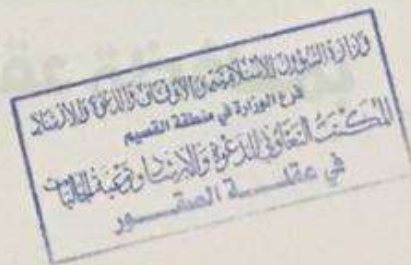 وزارة الشؤون الإسلامية والأوقاف والدعوة والإرشاد
فرع الوزارة في منطقة القصيم
المكتب التعاوني للدعوة والإرشاد وتوعية الجاليات
في عقلة الصقور